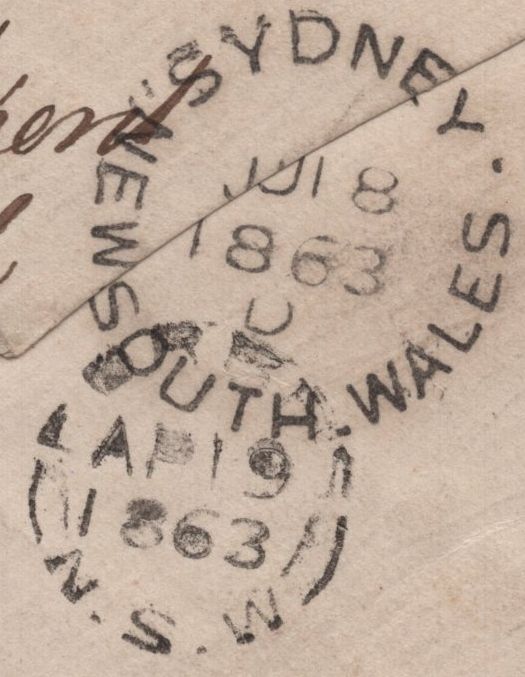 SYDNEY.
.NEW SOUTH.WALES.
18
1863
U
AP 19
1863
N.S.W